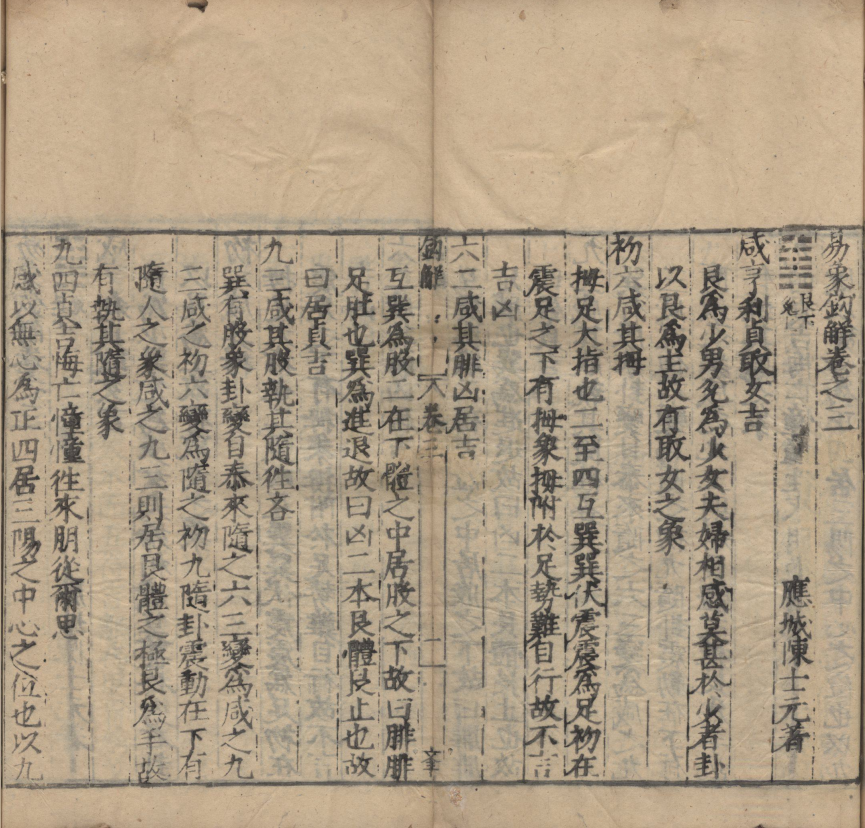 易象鈎解卷之三
䷞艮下兌上 應城陳士元著
咸亨利貞取女吉
艮爲少男兌爲少女夫婦相感莫甚於少者卦
以艮爲主故有取女之象
初六咸其拇
拇足大指也二至四互巽巽伏震震爲足初在
震足之下有拇象拇附於足勢難自行故不言
吉凶
六二咸其腓凶居吉
鈎解 卷三 一 奎
互巽爲股二在下體之中居股之下故曰腓腓
足肚也巽爲進退故曰凶二本艮體艮止也故
曰居貞吉
九三咸其股執其隨往吝
巽有股象卦變自泰來隨之六三變爲咸之九
三咸之初六變爲隨之初九隨卦震動在下有
隨人之象咸之九三則居艮體之極艮爲手故
有執其隨之象
九四貞吉悔亡憧憧往來朋從爾思
感以無心爲正四居三陽之中心之位也以九